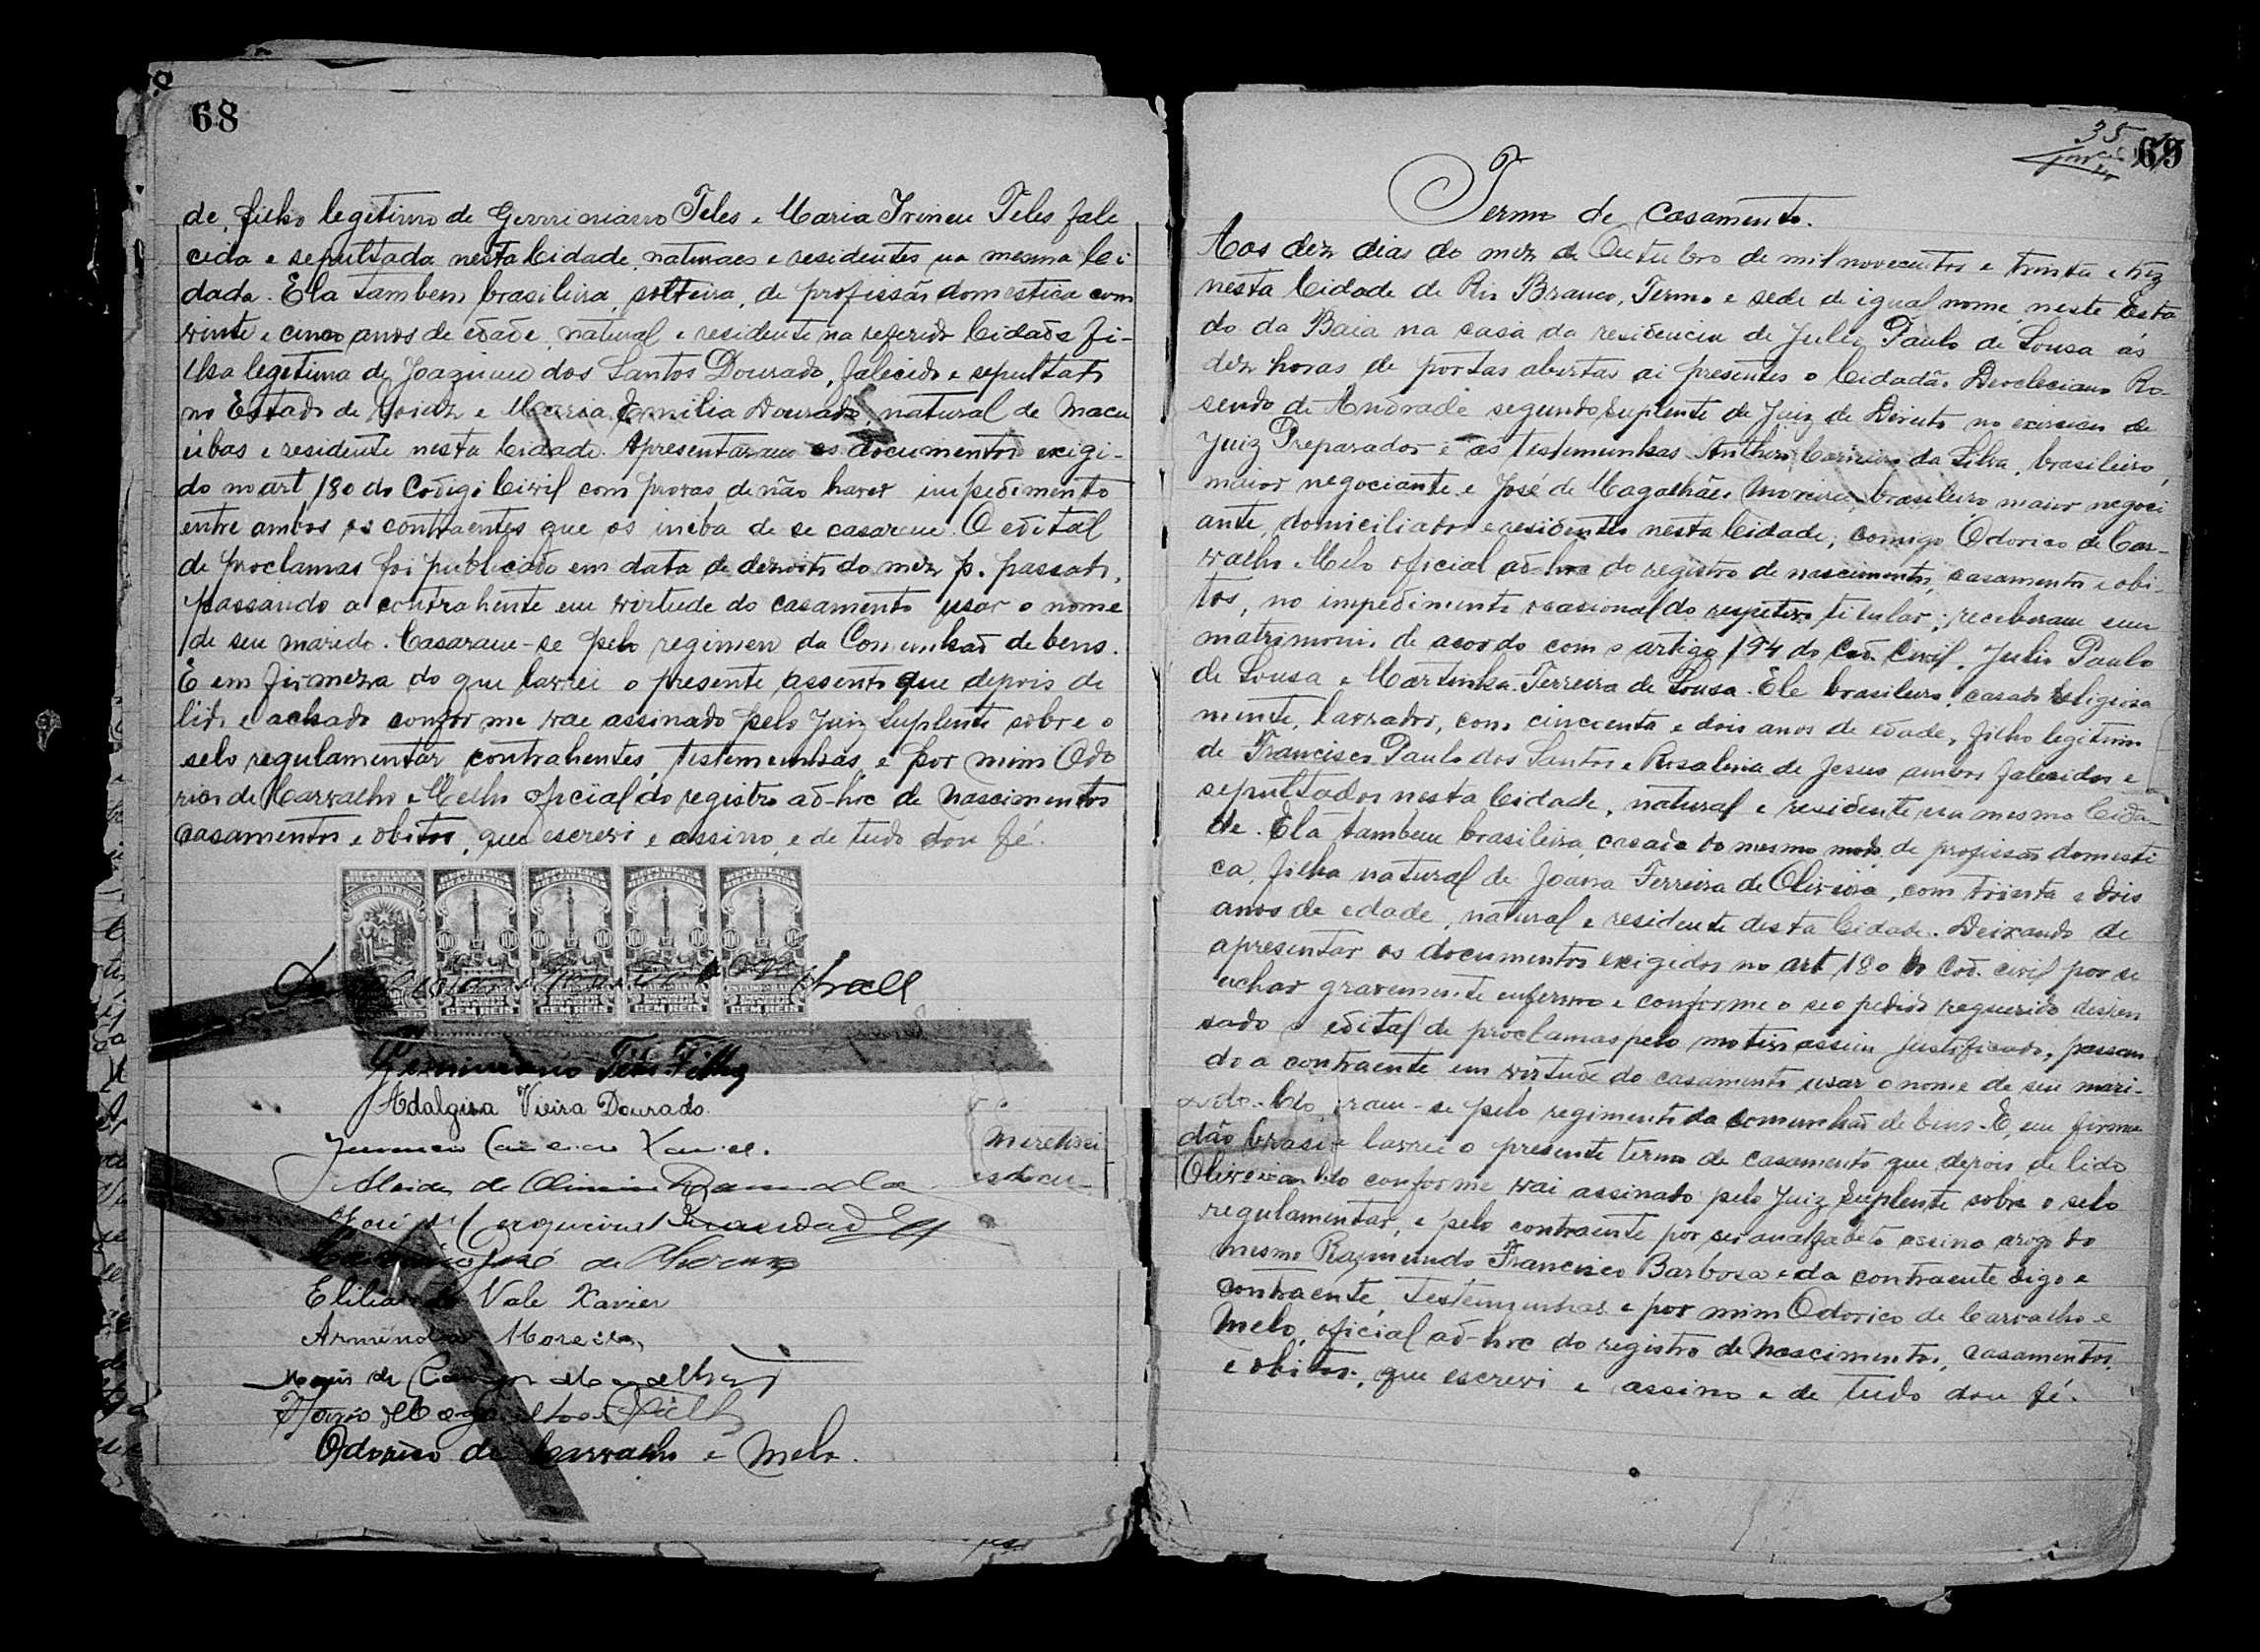 68
de, filho legitimo de Geminiano Teles e Maria Irineu Teles fale
cida e sepultada nesta Cidade, naturaes e residentes na mesma Ci
dade. Ela tambem brasileira, solteira, de profissão domestica com
vinte e cinco anos de edade, natural e residente na referida Cidade fi-
lha legitima de Joaquim dos Santos Dourado, falecido e sepultado
no Estado de Goiaz e Maria Emilia Dourado, natural de Macu
úbas e residente nesta Cidade. Apresentaram os documentos exigi-
do no art 180 do Codigo Civil com provas de não haver impedimento
entre ambos os contraentes que os iniba de se casarem. O edital
de proclamas foi publicado em data de dezoito do mez p. passado,
passando a contrahente em virtude do casamento usar o nome
de seu marido. Casaram-se pelo regimen da Comunhaõ de bens.
E em firmeza do que lavrei o presente assento que depois de
lido e achado conforme vae assinado pelo Juiz Suplente sobre o
selo regulamentar, contrahentes, testemunhas, e por mim Odo
rico de Carvalho e Mello oficial do registro ad-hoc de Nascimentos
casamentos e obitos, que escrevi e assino, e de tudo dou fé.
ESTADO DA BAHIA
100 100
CEM REIS CEM REIS CEM REIS CEM REIS
Geminiano Teles Filho
Adalgisa Vieira Dourado.
Xavier.
de Oliveira
José de Cerqueira
José de
Vale Xavier
Moreira
de
Odorico de Carvalho e Melo.
35
69
Termo de Casamento.
Aos dez dias do mez de Outubro de mil novecentos e trinta e trez
nesta Cidade de Rio Branco, Termo e sede de igual nome neste Esta
do da Baia na casa da residencia de Julio Paulo de Sousa ás
dez horas de portas abertas ai presentes o Cidadão Deocleciano Ro-
sendo de Andrade segundo Suplente de Juiz de Direito no exercicio de
Juiz Preparador e as testemunhas Anthero Carneiro da Silva, brasileiro,
maior negociante, e José de Magalhães Moreira, brasileiro, maior negoci
ante, domiciliados e residentes nesta Cidade, comigo Odorico de Car-
valho e Melo oficial ad-hoc do registro de nascimentos, casamentos e obi-
tos, no impedimento ocasional do respetivo titular; receberam em
matrimonio de acordo com o artigo 194 do Cod. Civil, Julio Paulo
de Sousa e Martinha Ferreira de Sousa. Ele brasileiro, casado religiosa
mente, lavrador, com cincoenta e dois anos de edade, filho legitimo
de Francisco Paulo dos Santos e Rosalina de Jesus ambos falecidos e
sepultados nesta Cidade, natural e residente na mesma Cida-
de. Ela tambem brasileira, casada do mesmo modo, de profissão domesti
ca, filha natural de Joana Ferreira de Oliveira, com trinta e dois
anos de edade, natural e residente desta Cidade. Deixando de
apresentar os documentos exigidos no art 180 do Cod. civil por se
achar gravemente enfermo e conforme o seo pedido requerido dispen
sado o edital de proclamas pelo motivo assim justificado, passan
do a contraente em virtude do casamento usar o nome de seu mari-
ram-se pelo regimento da comunhaõ de bens. E, em firme
lavrei o presente termo de casamento que depois de lido
conforme vai assinado pelo Juiz Suplente sobre o selo
regulamentar, e pelo contraente por ser analfabeto assina arogo do
mesmo Raymundo Francisco Barbosa e da contraente digo e
contraente, Testemunhas e por mim Odorico de Carvalho e
Melo, oficial ad-hoc do registro de Nascimentos, casamentos,
e obitos, que escrevi e assino e de tudo dou fé.